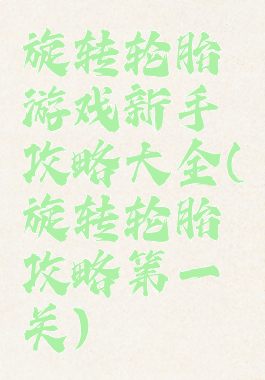 旋转轮胎
游戏新手
攻略大全(
旋转轮胎
攻略第一
关)